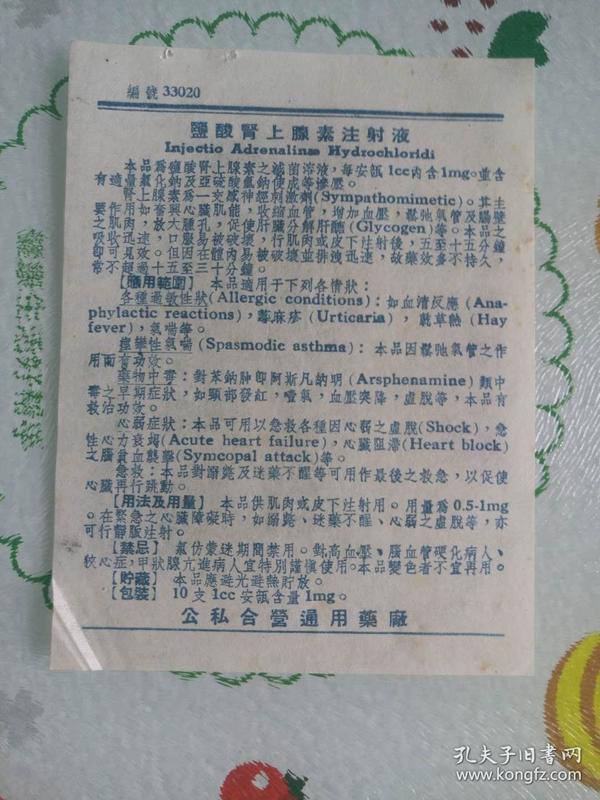 編號 33020
鹽酸腎上腺素注射液
Injectio Adrenalinæ Hydrochloridi
本品爲鹽酸腎上腺素之滅菌溶液，每安瓿1cc內含1mg。並含
有適量氯化鈉及亞硫酸氫鈉使成等滲壓。
腎上腺素爲一交感神經刺激劑(Sympathomimetic)。其主
要作用如奮興心臟肌能，收縮血管，增加血壓，鬆弛氣管及腸壁
之肌肉，放大瞳孔，促使肝臟分解肝醣(Glycogen)等。本品之
吸收迅速，口服易被破壞，行肌肉或皮下注射後，五至十五分鐘
即可見效。但因在體內易被破壞並排洩迅速，故藥效多不持久，
常不超過十五至三十分鐘。
【應用範圍】 本品適用于下列各情狀：
各種過敏性狀(Allergic conditions)：如血清反應(Ana-
phylactic reactions)，蕁麻疹(Urticaria)，乾草熱(Hay
fever)，氣喘等。
痙攣性氣喘(Spasmodic asthma)：本品因鬆弛氣管之作
用而奏功效。
藥物中毒：對苯鈉胂即阿斯凡納明(Arsphenamine)類中
毒之早期症狀，如頸部發紅，噎氣，血壓突降，虛脫等，本品有
救治功效。
心弱症狀：本品可用以急救各種因心弱之虛脫(Shock)，急
性心力衰竭(Acute heart failure)，心臟阻滯(Heart block)
之腦貧血襲擊(Symcopal attack)等。
急救：本品對溺斃及迷藥不醒等可用作最後之救急，以促使
心臟再行跳動。
【用法及用量】 本品供肌肉或皮下注射用。用量爲0.5-1mg
。在緊急之心臟障礙時，如溺斃、迷藥不醒、心弱之虛脫等，亦
可行靜脈注射。
【禁忌】 氯仿蒙迷期間禁用。對高血壓、腦血管硬化病人、
狹心症，甲狀腺亢進病人宜特別謹愼使用。本品變色者不宜再用。
【貯藏】 本品應避光避熱貯放。
【包裝】 10支1cc安瓿含量1mg。
公私合營通用藥廠
孔夫子旧书网
www.kongfz.com